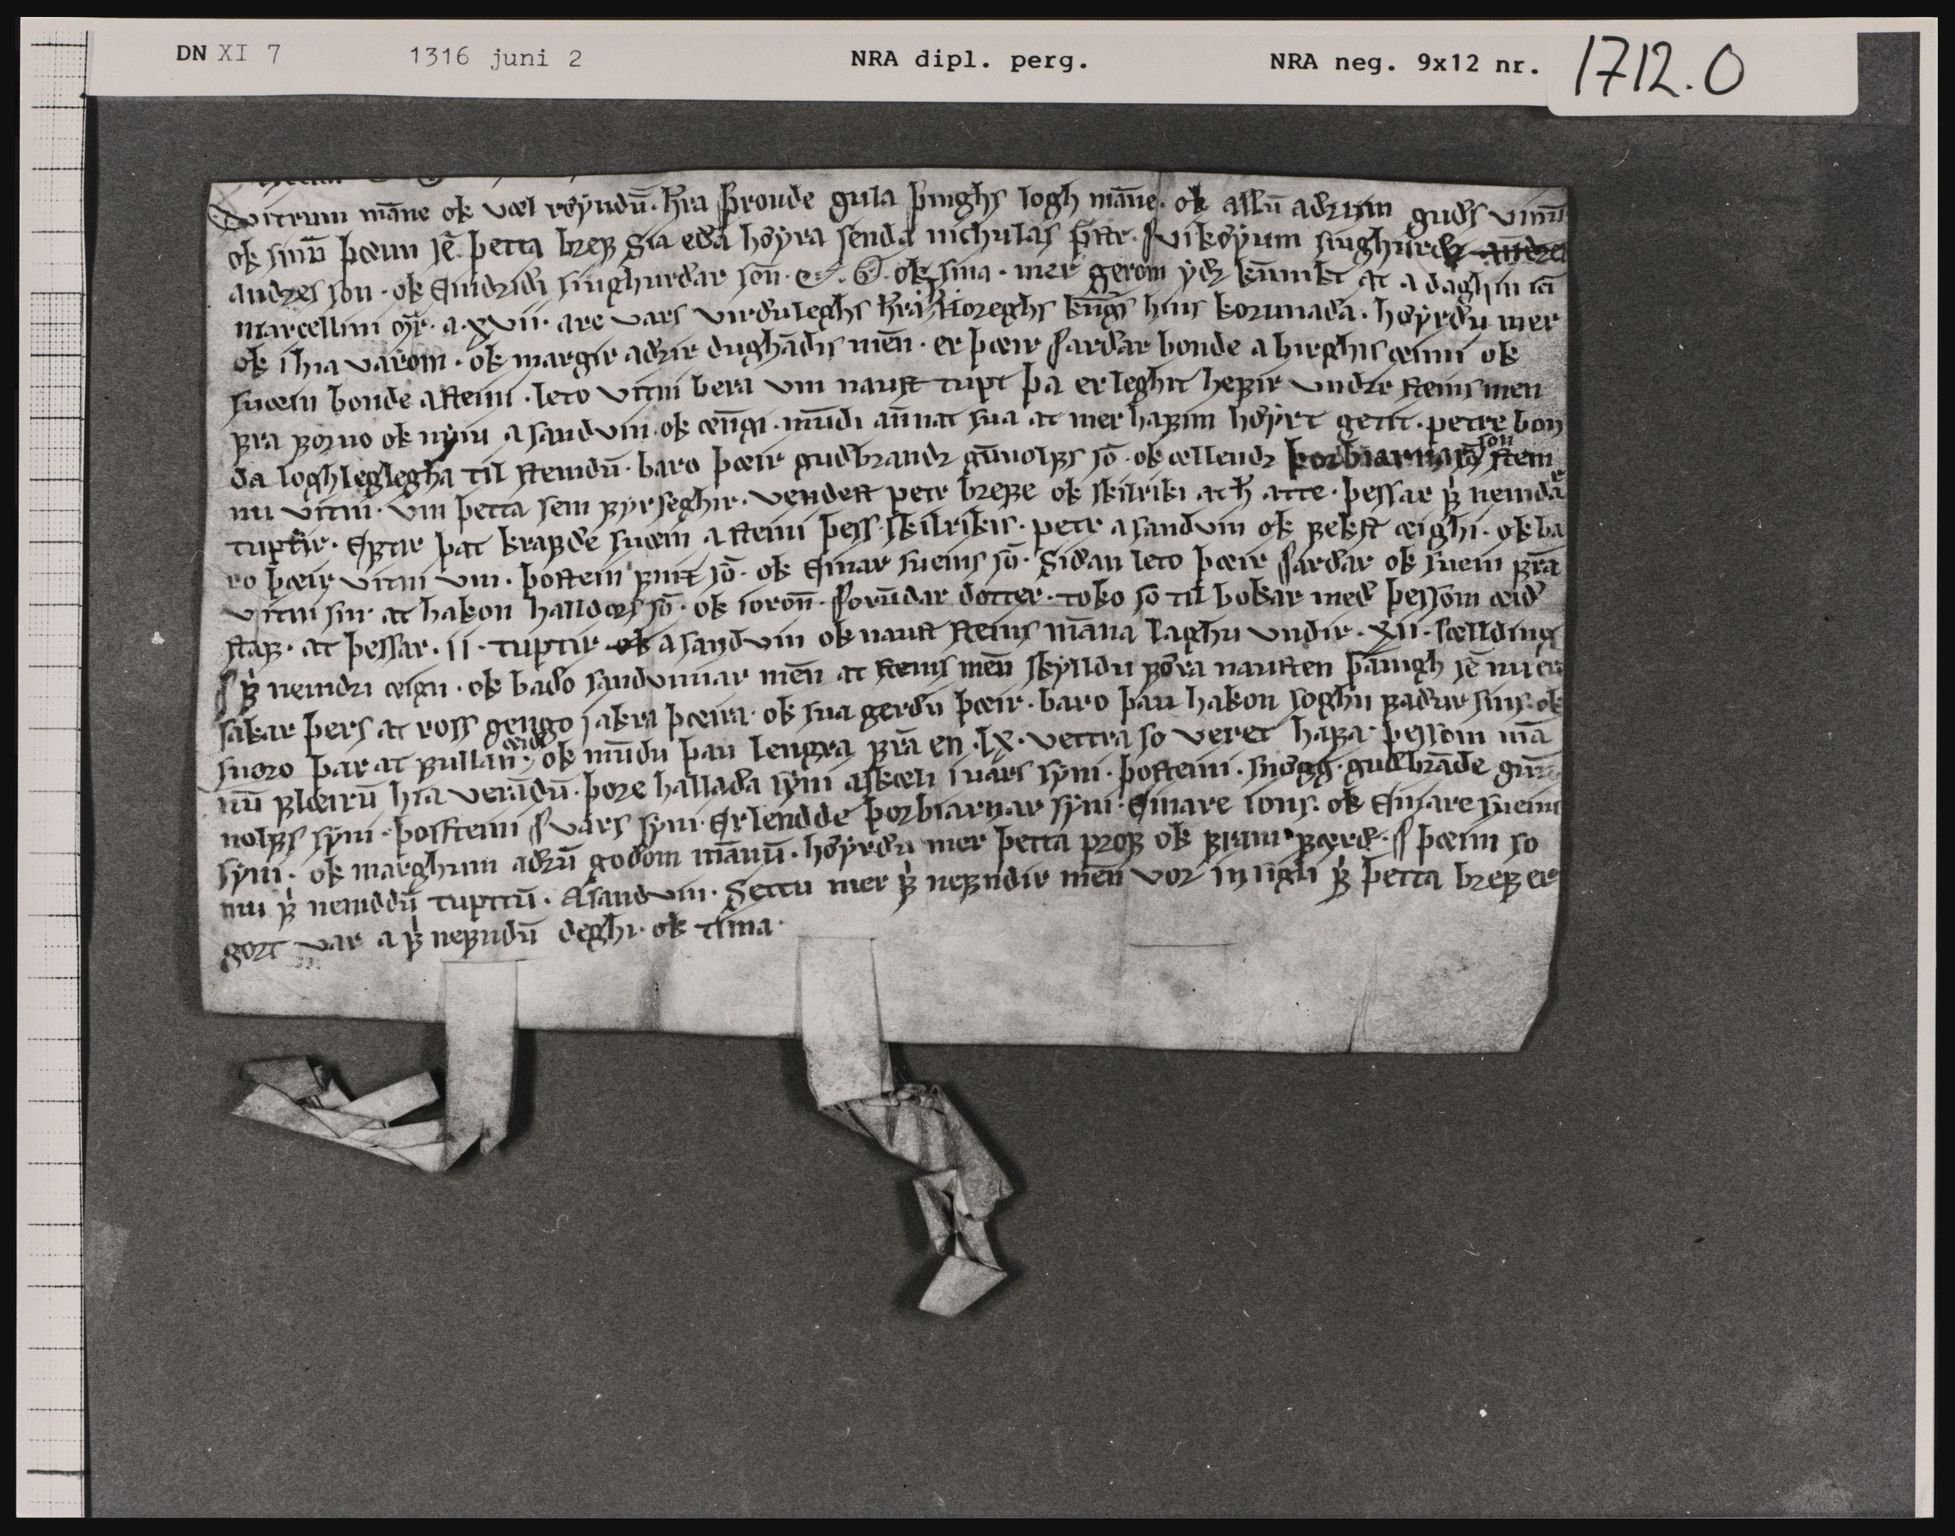 DN XI 7 1316 juni 2 NRA dipl. perg. NRA neg. 9x12 nr. 1712.0
vitrum mãne ok væl røyndũ· h̃ra þronde gula þinghs logh mãne· ok allũ adrum guðs vinũ
ok sinũ þæim sẽ þetta breꝼ sia eða høyra senda nichulas þ̃str· i vikøyum siughurðr
andres son· ok Eindriði siughurðar sõn· ok sina· mer gerom yðr kũnikt at a daghin
marcellini m̃r· a·xvii· are vars virðuleghs h̃ra Noreghs kũgs hins korunaða· høyrðu mer
ok i hia varom· ok margir adrir dughãdis mẽn· er þæir sardar bonde a birghis æimi ok
suæin bonde a steini· leto vitni bera vm naust tupt þa er leghit heꝼir vndir steins men
ꝼra ꝼorno ok nyiu a sandvin· ok æñgi· mũdi añnat sua at mer haꝼim høyrt getit· petre bon
da loghleglegha til stemdũ· baro þæir guðbrandr gũnolꝼs sõ· ok ællendr þorbiarnar son stem
nu vitni· vm þetta sem ꝼyr seghir· petr breꝼe ok skilriki at h̃ atte· þessar ꝼ̛ nemdar
tuptir· Eꝼtir þat kraꝼðe suæin a steini þess skilrikis· petr a sandvin ok ꝼekst æighi· ok ba
ro þæir vitni vm· þostein sõ· ok Einar sueins sõ· Siðan leto þæir sardar ok suein ꝼrã
vitni sin at hakon halldors sõ· ok ioroñ· dotter· toko sõ til bokar með þessom æið
staꝼ· at þessar· ii· tuptir a sandvin ok naust steins mãna laghu vndir· xii· sælldingx
ꝼ̛ nemdri æign· ok baðo sandvinar mẽn at steins mẽn skylldu ꝼøra nausten þãnigh sẽ nu ero
sakar þers at ross gengo i akra þæira· ok sua gerðu þæir· baro þau hakon soghu ꝼaður sins· ok
suoro þar at ꝼullan æið· ok mũdu þau lengra ꝼrã en· lx· vettra so veret haꝼa· þessom mã
nũ ꝼlæirũ hia verãdũ· þore hallaða syni askæli iuars syni· þosteini· snøgg· guðbrãðe gũn
nolꝼs syni· þossteini ivars syni· Erlendde þorbiarnar syni· Einare ions· ok Einare suein
syni· ok marghum adrũ goðom mãnũ· høyrðu mer þetta proꝼ ok ꝼram ꝼærð· i þæim so
mu ꝼ̛ nemddũ tupttũ· a sandvin· Settu mer ꝼ̛ neꝼndir mẽn vor insigli ꝼ̛ þetta breꝼ er
gort var a ꝼ̛ neꝼndũ deghi· ok tima·